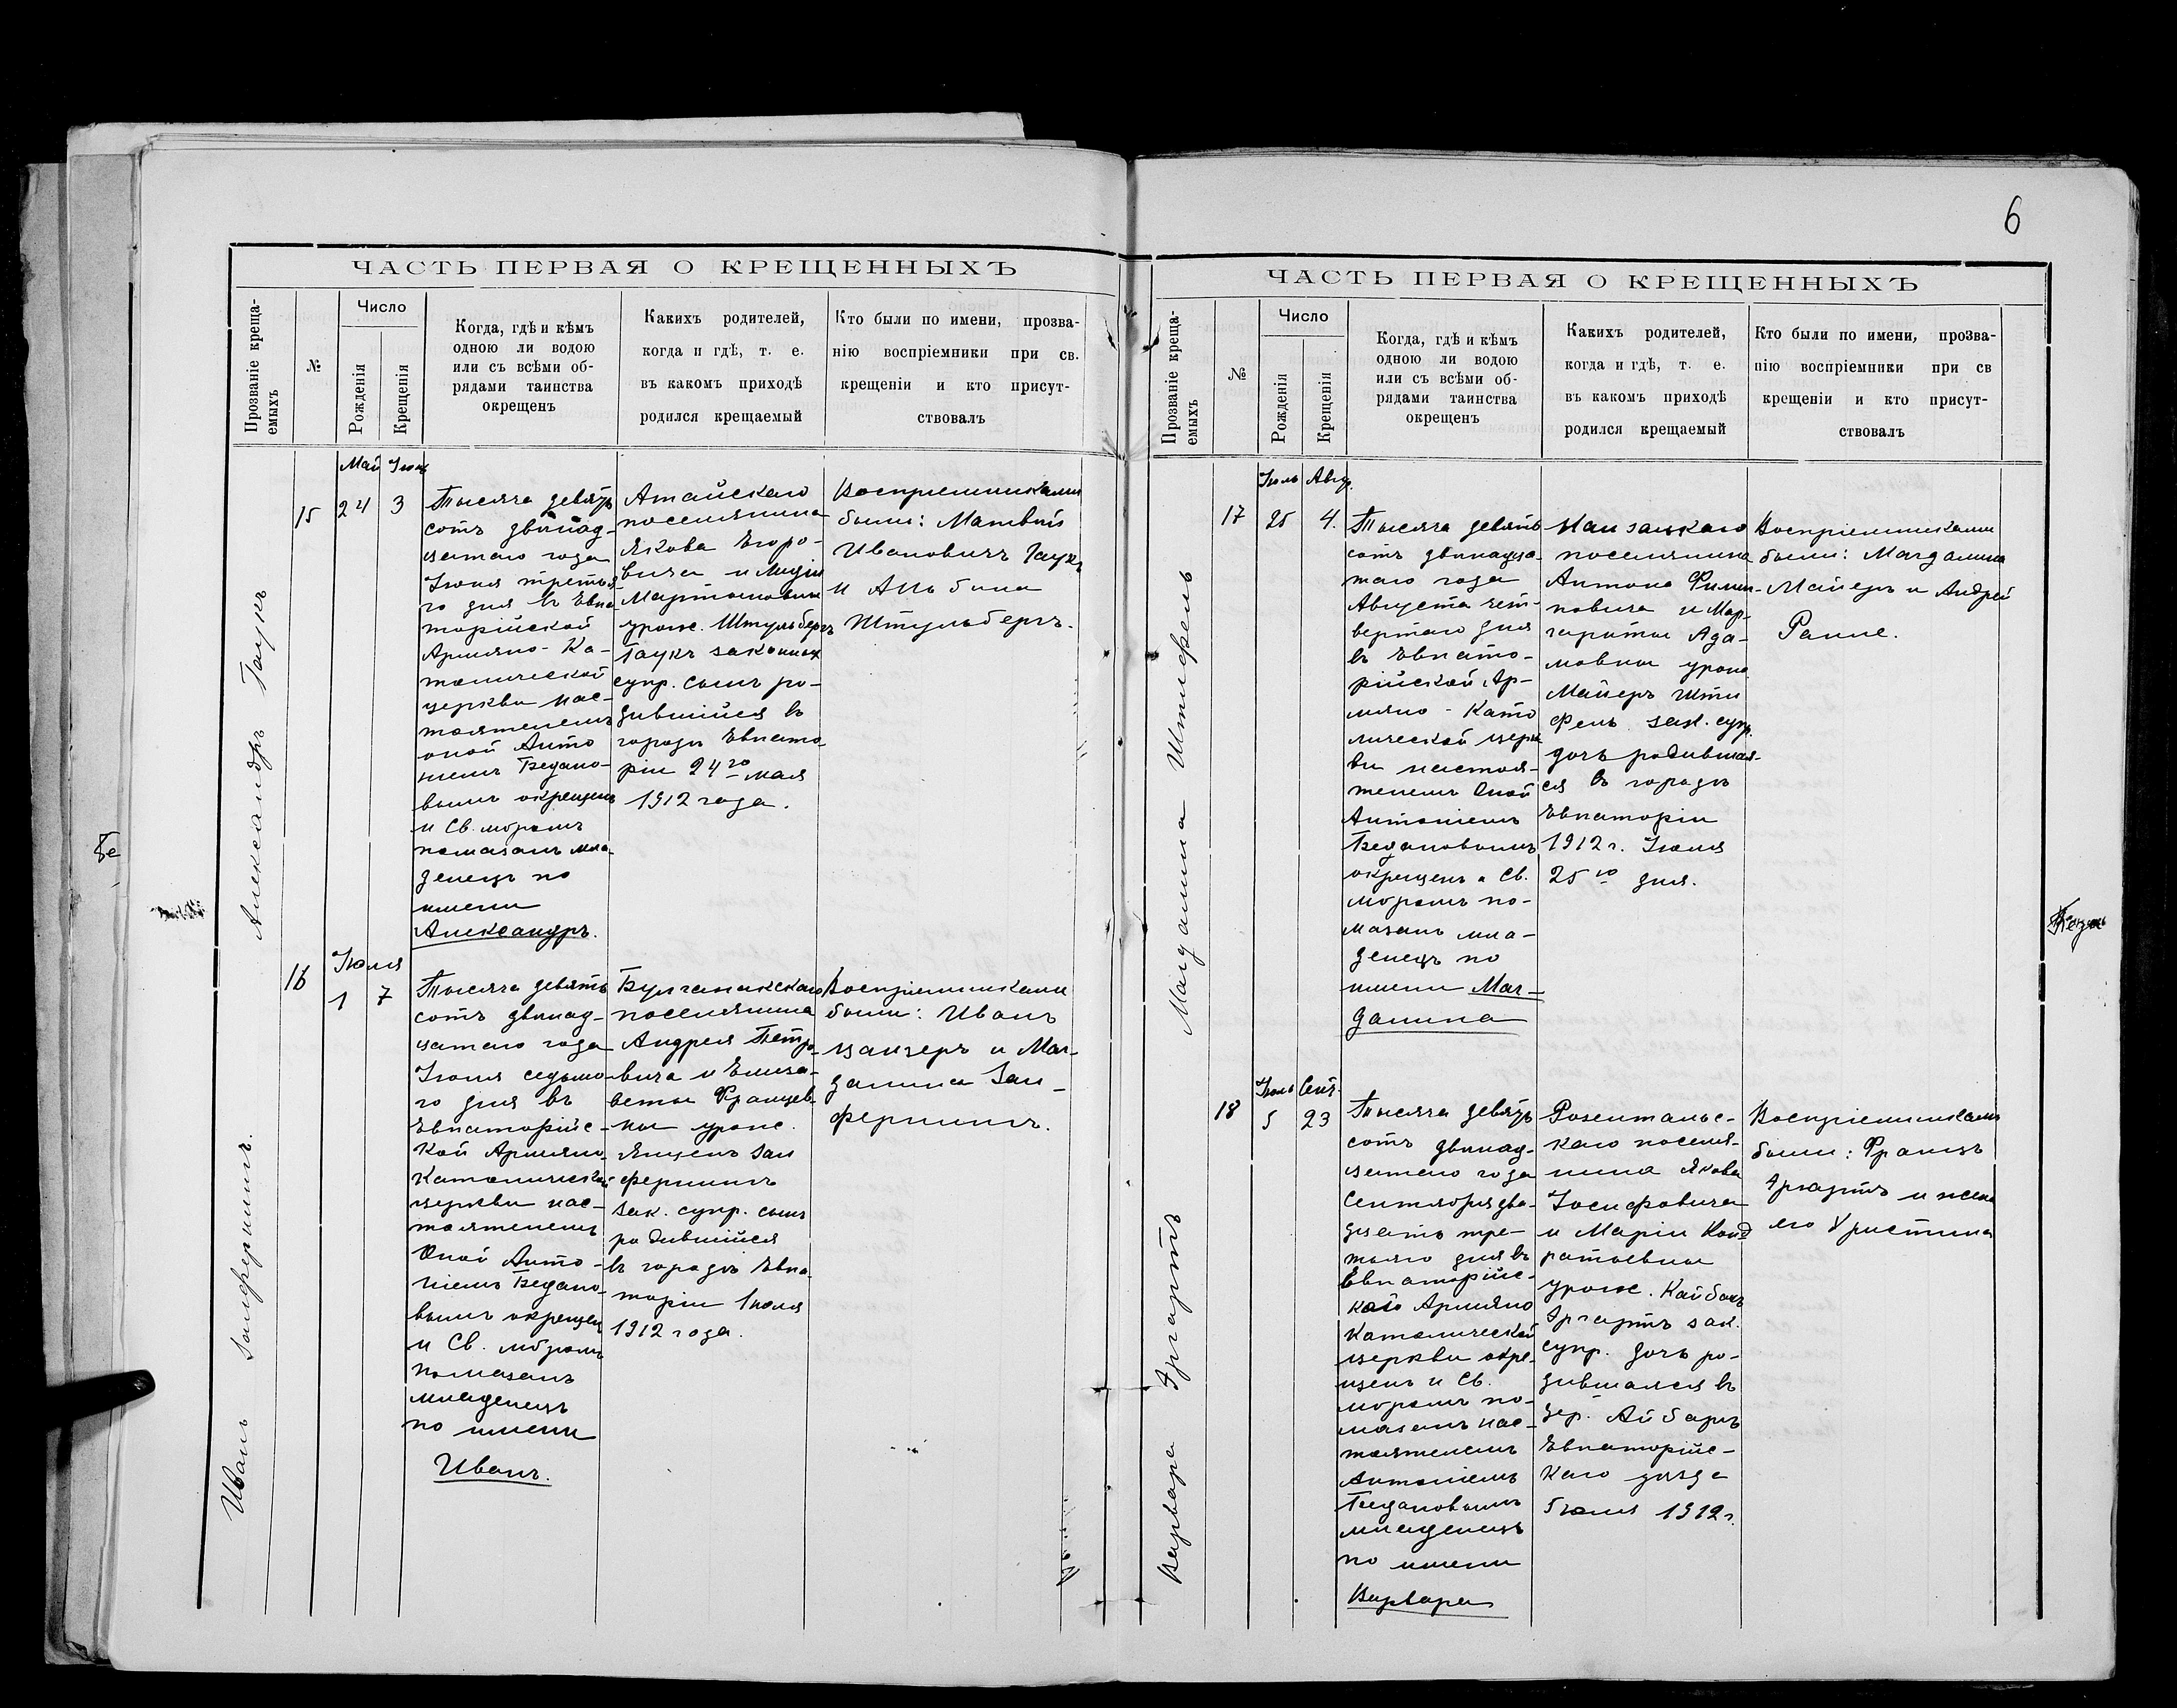 ЧАСТЬ ПЕРВАЯ О КРЕЩЕННЫХЪ
Прозваніе креща-
емыхъ
№
Число
Рожденія
Крещенія
Когда, гдѣ и кѣмъ
одною ли водою
или съ всѣми об-
рядами таинства
окрещенъ
Какихъ родителей,
когда и гдѣ, т. е.
въ какомъ приходѣ
родился крещаемый
Кто были по имени, прозва-
нію воспріемники при св.
крещеніи и кто присут-
ствовалъ
Александръ Гаукъ
15
Май
24
3
Тысяча девять
сотъ двѣнад-
цатаго года
Іюня третья
го дня въ Евпа
торійской
Армяно-Ка-
толической
церкви нас-
тоятелемъ
оной Анто
ніемъ
вымъ окрещенъ
и Св. мѵромъ
помазанъ мла-
денецъ по
имени
Александръ.
Атайскаго
поселянина
Якова Егоро-
вича и Лидіи
Мартиновны
урож. Штульбергъ
Гаукъ законныхъ
супр. сынъ ро-
дившійся въ
городѣ Евпато-
ріи 24го мая
1912 года.
Воспріемниками
были: Матвѣй
Ивановичъ Гаукъ
и Альбина
Штульбергъ.
Иванъ Занферлинъ.
16
Іюля
1
7
Тысяча девять
сотъ двинад-
цатаго года
Іюля седьмо-
го дня въ
Евпаторійс-
кой Армяно
Католической
церкви нас-
тоятелемъ
Оной Анто-
ніемъ
вымъ окрещенъ
и Св. мѵромъ
помазанъ
младенецъ
по имени
Иванъ.
Булганакскаго
поселянина
Андрея Петро-
вича и Елиза-
веты Францев-
ны урож.
Зан
ферлинъ
зак. супр. сынъ
родившійся
въ городѣ Евпа-
торіи 1 іюля
1912 года.
Воспріемниками
были: Иванъ
Цангеръ и Маг-
далина Зан-
ферлинъ.
6
ЧАСТЬ ПЕРВАЯ О КРЕЩЕННЫХЪ
Прозваніе креща-
емыхъ
№
Число
Рожденія
Крещенія
Когда, гдѣ и кѣмъ
одною ли водою
или съ всѣми об-
рядами таинства
окрещенъ
Какихъ родителей,
когда и гдѣ, т. е.
въ какомъ приходѣ
родился крещаемый
Кто были по имени, прозва-
нію воспріемники при св
крещеніи и кто присут-
ствовалъ
Магдалина Штифель
17
Іюль Авг.
25
4.
Тысяча девять
сотъ двинадца-
таго года
Августа чет-
вертаго дня
въ Евпато-
рійской Ар-
мяно-Като
лической церк
ви настоя-
телемъ Оной
Антоніемъ
окрещенъ и Св.
мѵромъ по-
мазанъ мла-
денецъ по
имени Маг-
далина
поселянина
Антона Филип-
повича и Мар-
гариты Ада-
мовны урож
Майеръ Шти
фель зак. супр.
дочь родившая-
ся въ городѣ
Евпаторіи
1912 г. Іюля
25го дня.
Воспріемниками
были: Магдалина
Майеръ и Андрей
Ранле.
Варвара Эргартъ
18
Іюль Сент.
5
23
Тысяча девять
сотъ двинад-
цатаго года
Сентября два-
дцать тре-
тьяго дня въ
Евпаторійс-
кой Армяно
Католической
церкви окре-
щенъ и Св.
мѵромъ по-
мазанъ нас-
тоятелемъ
Антоніемъ
младенецъ
по имени
Варвара
Розентальс-
каго поселя-
нина Якова
Іосифовича
и Маріи Конд
ратьевны
урож. Кайбахъ
Эргартъ зак.
супр. дочь ро-
дившаяся въ
дер. Айбаръ
Евпаторійс-
каго уѣзда
5 іюля 1912 г.
Воспріемниками
были: Францъ
Эргартъ и жена
его Христина